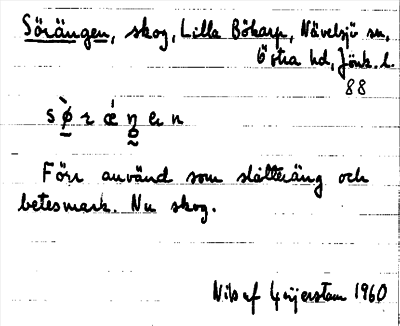 Sörängen, skog, Lilla Bökarp, Nävelsjö sn,
Östra hd, Jönk. l.
88
s ø̀ r ǽ ŋ e n
Förr använd som slåtteräng och
betesmark. Nu skog.
Nils af Geijerstam 1960